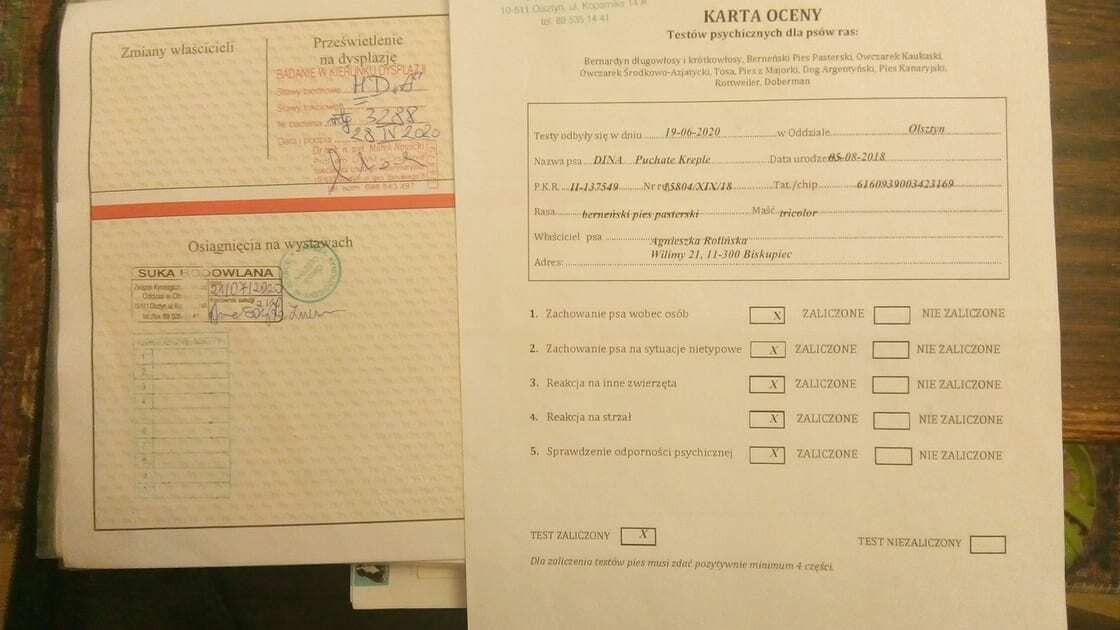 Zmiany właścicieli
Prześwietlenie
na dysplazję
BADANIE W KIERUNKU DYSPLAZJI
Stawy biodrowe HD.A
Stawy łokciowe
Nr badania 3288
Data i podpis 28 IV 2020
Osiągnięcia na wystawach
SUKA HODOWLANA
Związek Kynologicz
Oddział w Ol
10-511 Olsztyn, ul. Ko
tel./fax 89 535 41
10-511 Olsztyn, ul. Kopernika 14
tel. 89 535 14 41
KARTA OCENY
Testów psychicznych dla psów ras:
Bernardyn długowłosy i krótkowłosy, Berneński Pies Pasterski, Owczarek Kaukaski,
Owczarek Środkowo-Azjatycki, Tosa, Pies z Majorki, Dog Argentyński, Pies Kanaryjski,
Rottweiler, Doberman
Testy odbyły się w dniu 19-06-2020 w Oddziale Olsztyn
Nazwa psa DINA Puchate Kreple Data urodzenia 05-08-2018
P.K.R. II-137549 Nr re 15804/XIX/18 Tat./chip 6160939003423169
Rasa berneński pies pasterski Maść tricolor
Właściciel psa Agnieszka Rolińska
Adres: Wilimy 21, 11-300 Biskupiec
1. Zachowanie psa wobec osób X ZALICZONE NIE ZALICZONE
2. Zachowanie psa na sytuacje nietypowe X ZALICZONE NIE ZALICZONE
3. Reakcja na inne zwierzęta X ZALICZONE NIE ZALICZONE
4. Reakcja na strzał X ZALICZONE NIE ZALICZONE
5. Sprawdzenie odporności psychicznej X ZALICZONE NIE ZALICZONE
TEST ZALICZONY X TEST NIEZALICZONY
Dla zaliczenia testów pies musi zdać pozytywnie minimum 4 części.